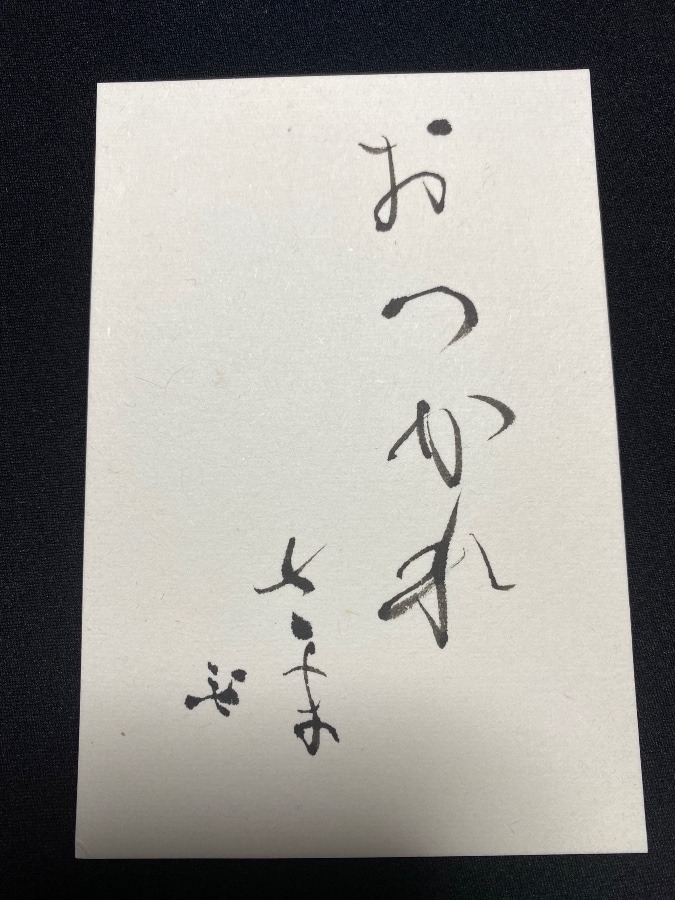 おつかれ
さま